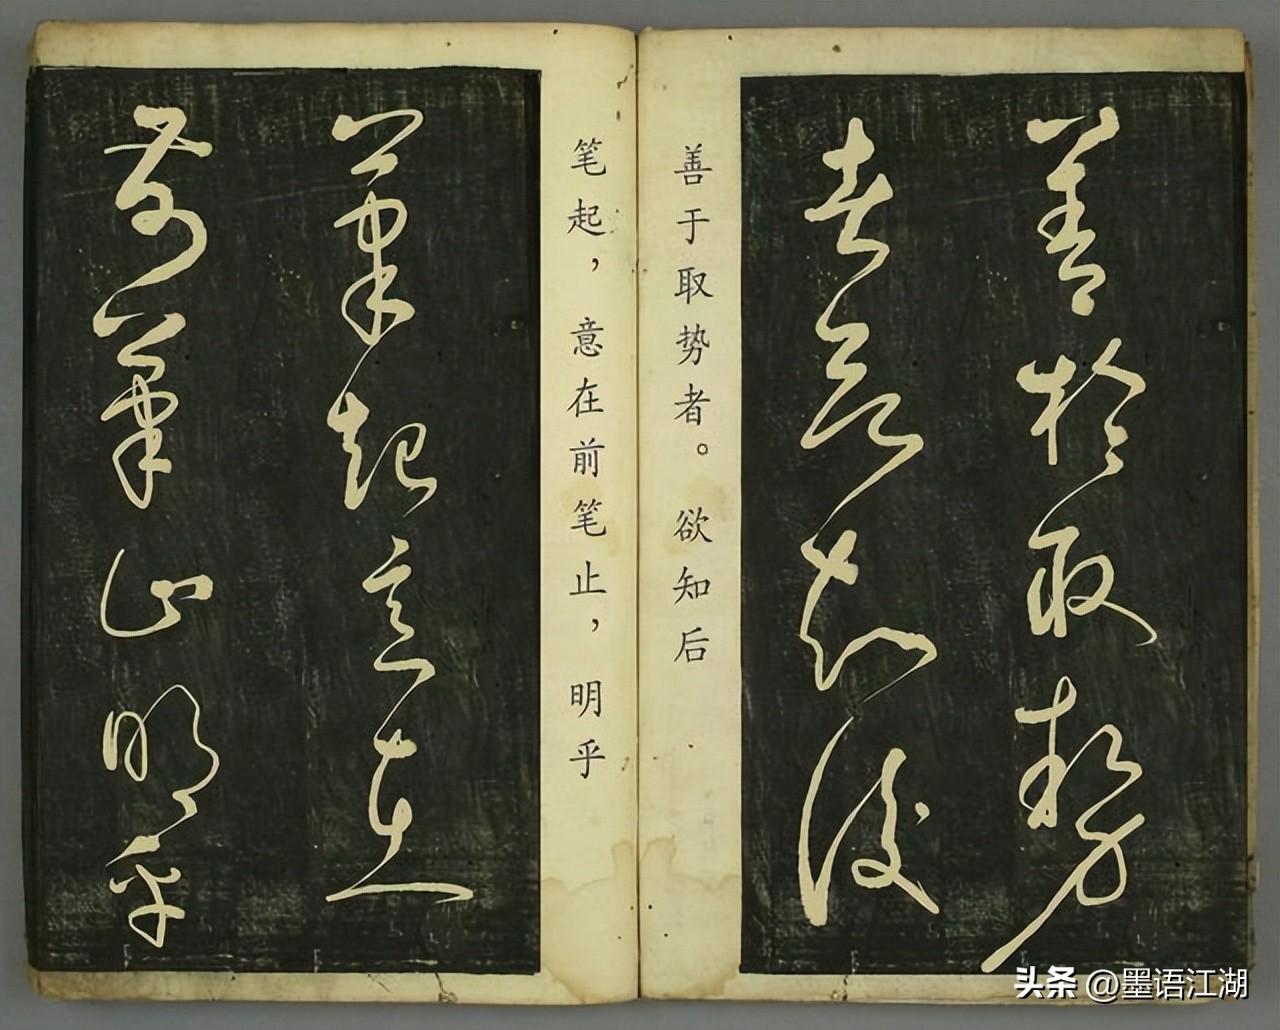 善於取势
者欲知後
善于取势者。欲知后
笔起，意在前笔止，明乎
筆起意在
前筆止明乎
头条 @墨语江湖